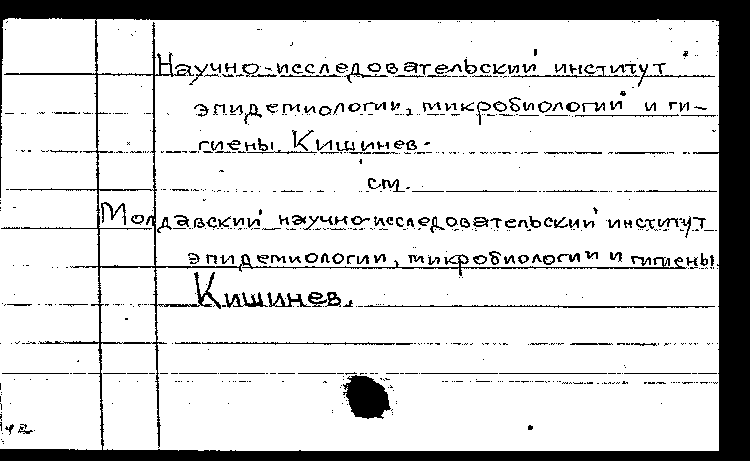 Научно-исследовательский институт
эпидемиологии, микробиологии и ги-
гиены. Кишинев.
см.
Молдавский научно-исследовательский институт
эпидемиологии, микробиологии и гигиены.
Кишинев.